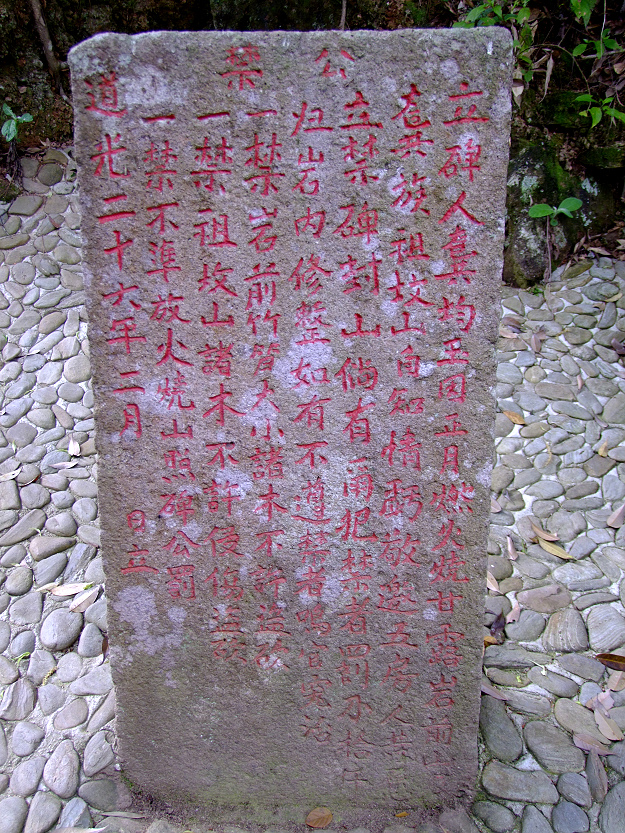 公禁
立碑人龔均玉因正月燃火燒甘露岩前山
族祖坟山自知情虧敬邀五房人等
立禁碑封山倘有再犯禁者
归岩内修整如有不遵禁者鳴官究治
一禁岩前竹管大小諸木不許盜砍
一禁祖坟山諸木不許侵傷盜砍
一禁不準放火燒山照碑公罰
道光二十六年二月 日立